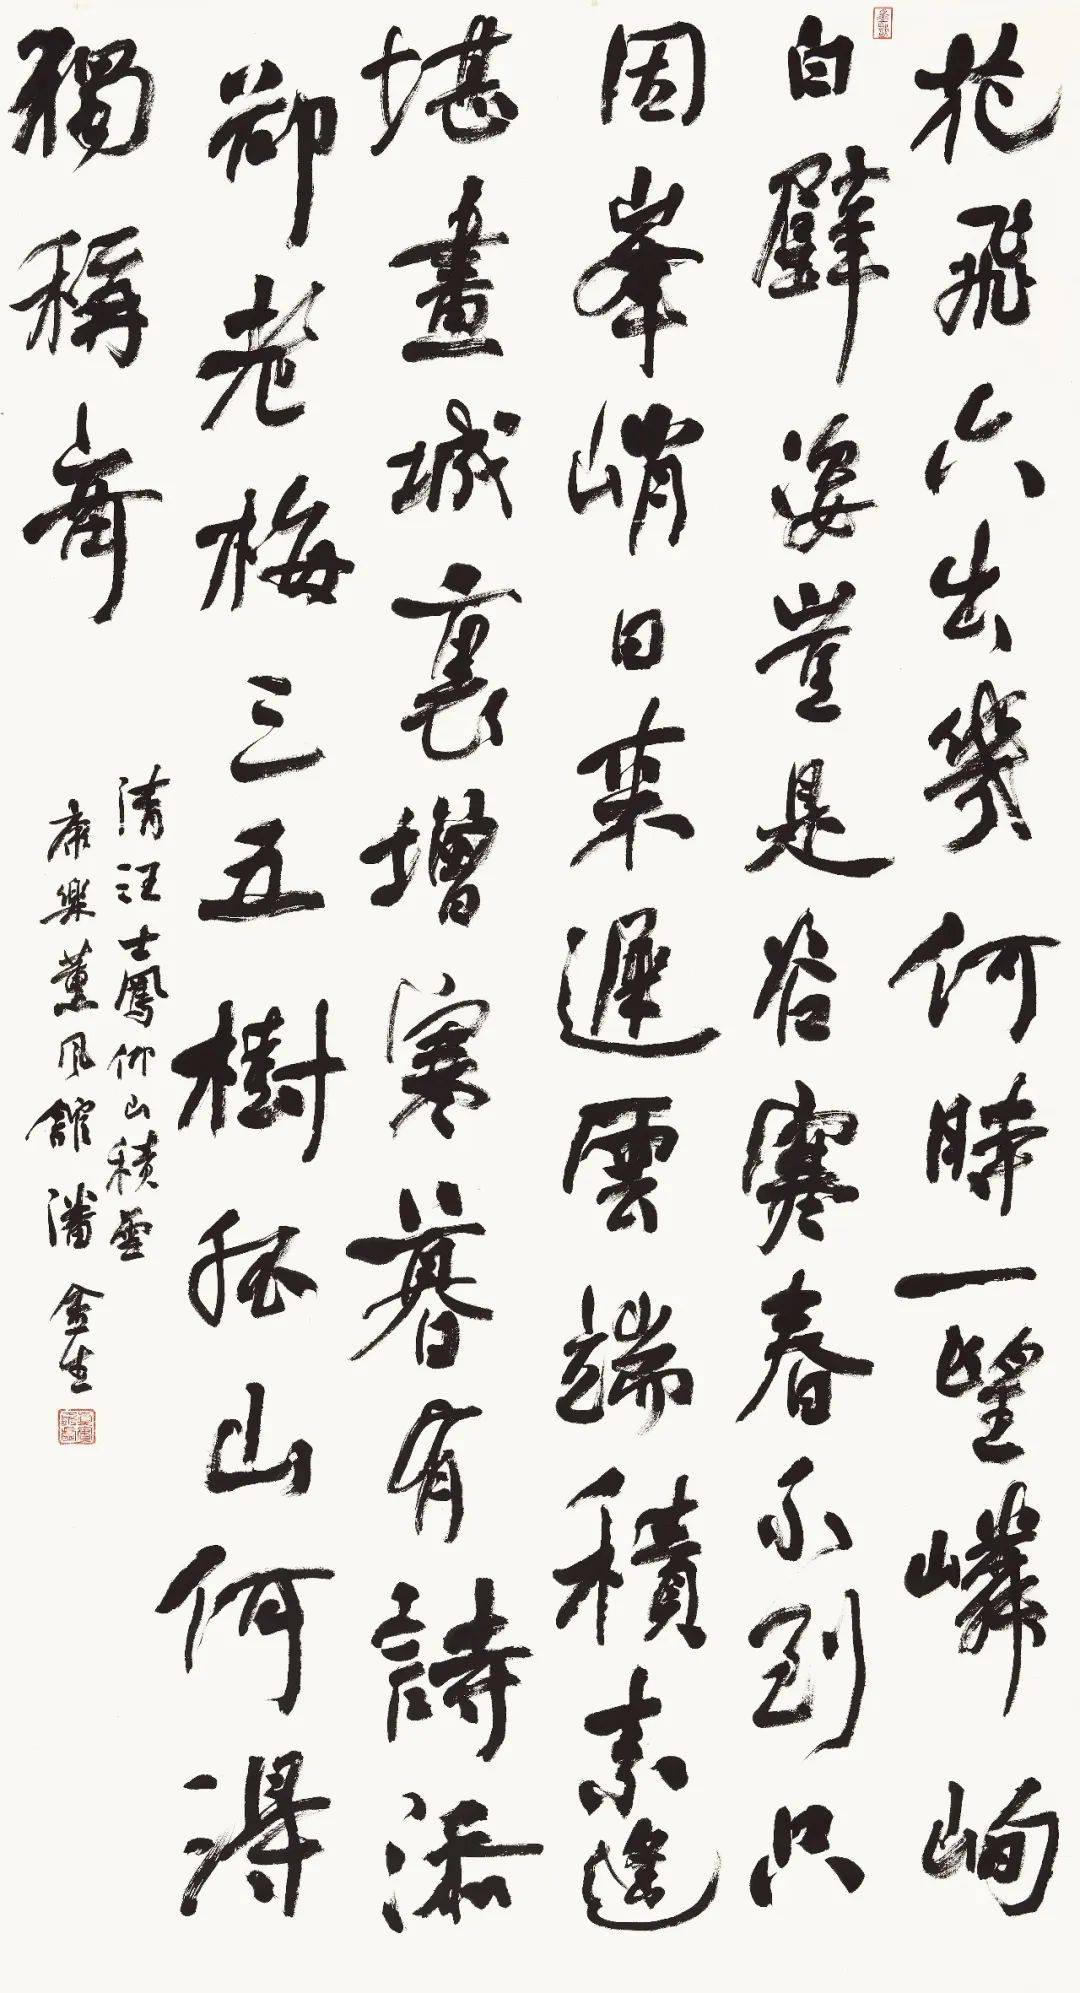 花飛六出幾何時一望嶙峋
白璧姿豈是谷寒春不到只
因峯峭日來遲雲端積素遙
堪畫城裏增寒暮有詩添
卻老梅三五樹孤山何得
獨稱奇
清汪士鳳仰山積雪
康樂薰風館潘金生